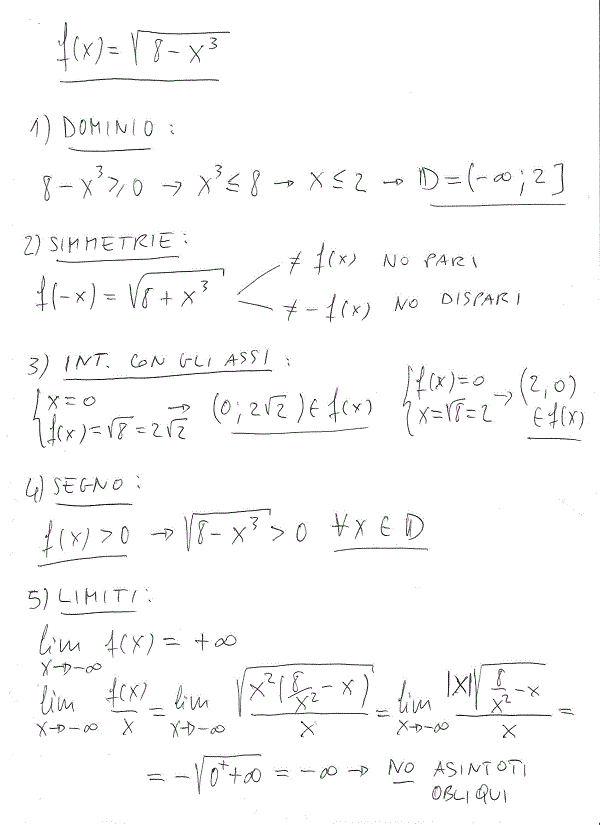 f(x) = √(8 - x³)
1) DOMINIO :
8 - x³ ≥ 0 → x³ ≤ 8 → x ≤ 2 → D = (-∞ ; 2]
2) SIMMETRIE :
f(-x) = √(8 + x³) ≠ f(x) NO PARI
≠ - f(x) NO DISPARI
3) INT. CON GLI ASSI :
{x = 0 {f(x) = √8 = 2√2 → (0 ; 2√2) ∈ f(x) {f(x) = 0 {x = √8 = 2 → (2, 0) ∈ f(x)
4) SEGNO :
f(x) > 0 → √(8 - x³) > 0 ∀x ∈ D
5) LIMITI :
lim x→-∞ f(x) = +∞
lim x→-∞ f(x)/x = lim x→-∞ √(x²(8/x² - x))/x = lim x→-∞ |x|√(8/x² - x)/x =
= -√(0⁺ + ∞) = -∞ → NO ASINTOTI
OBLIQUI